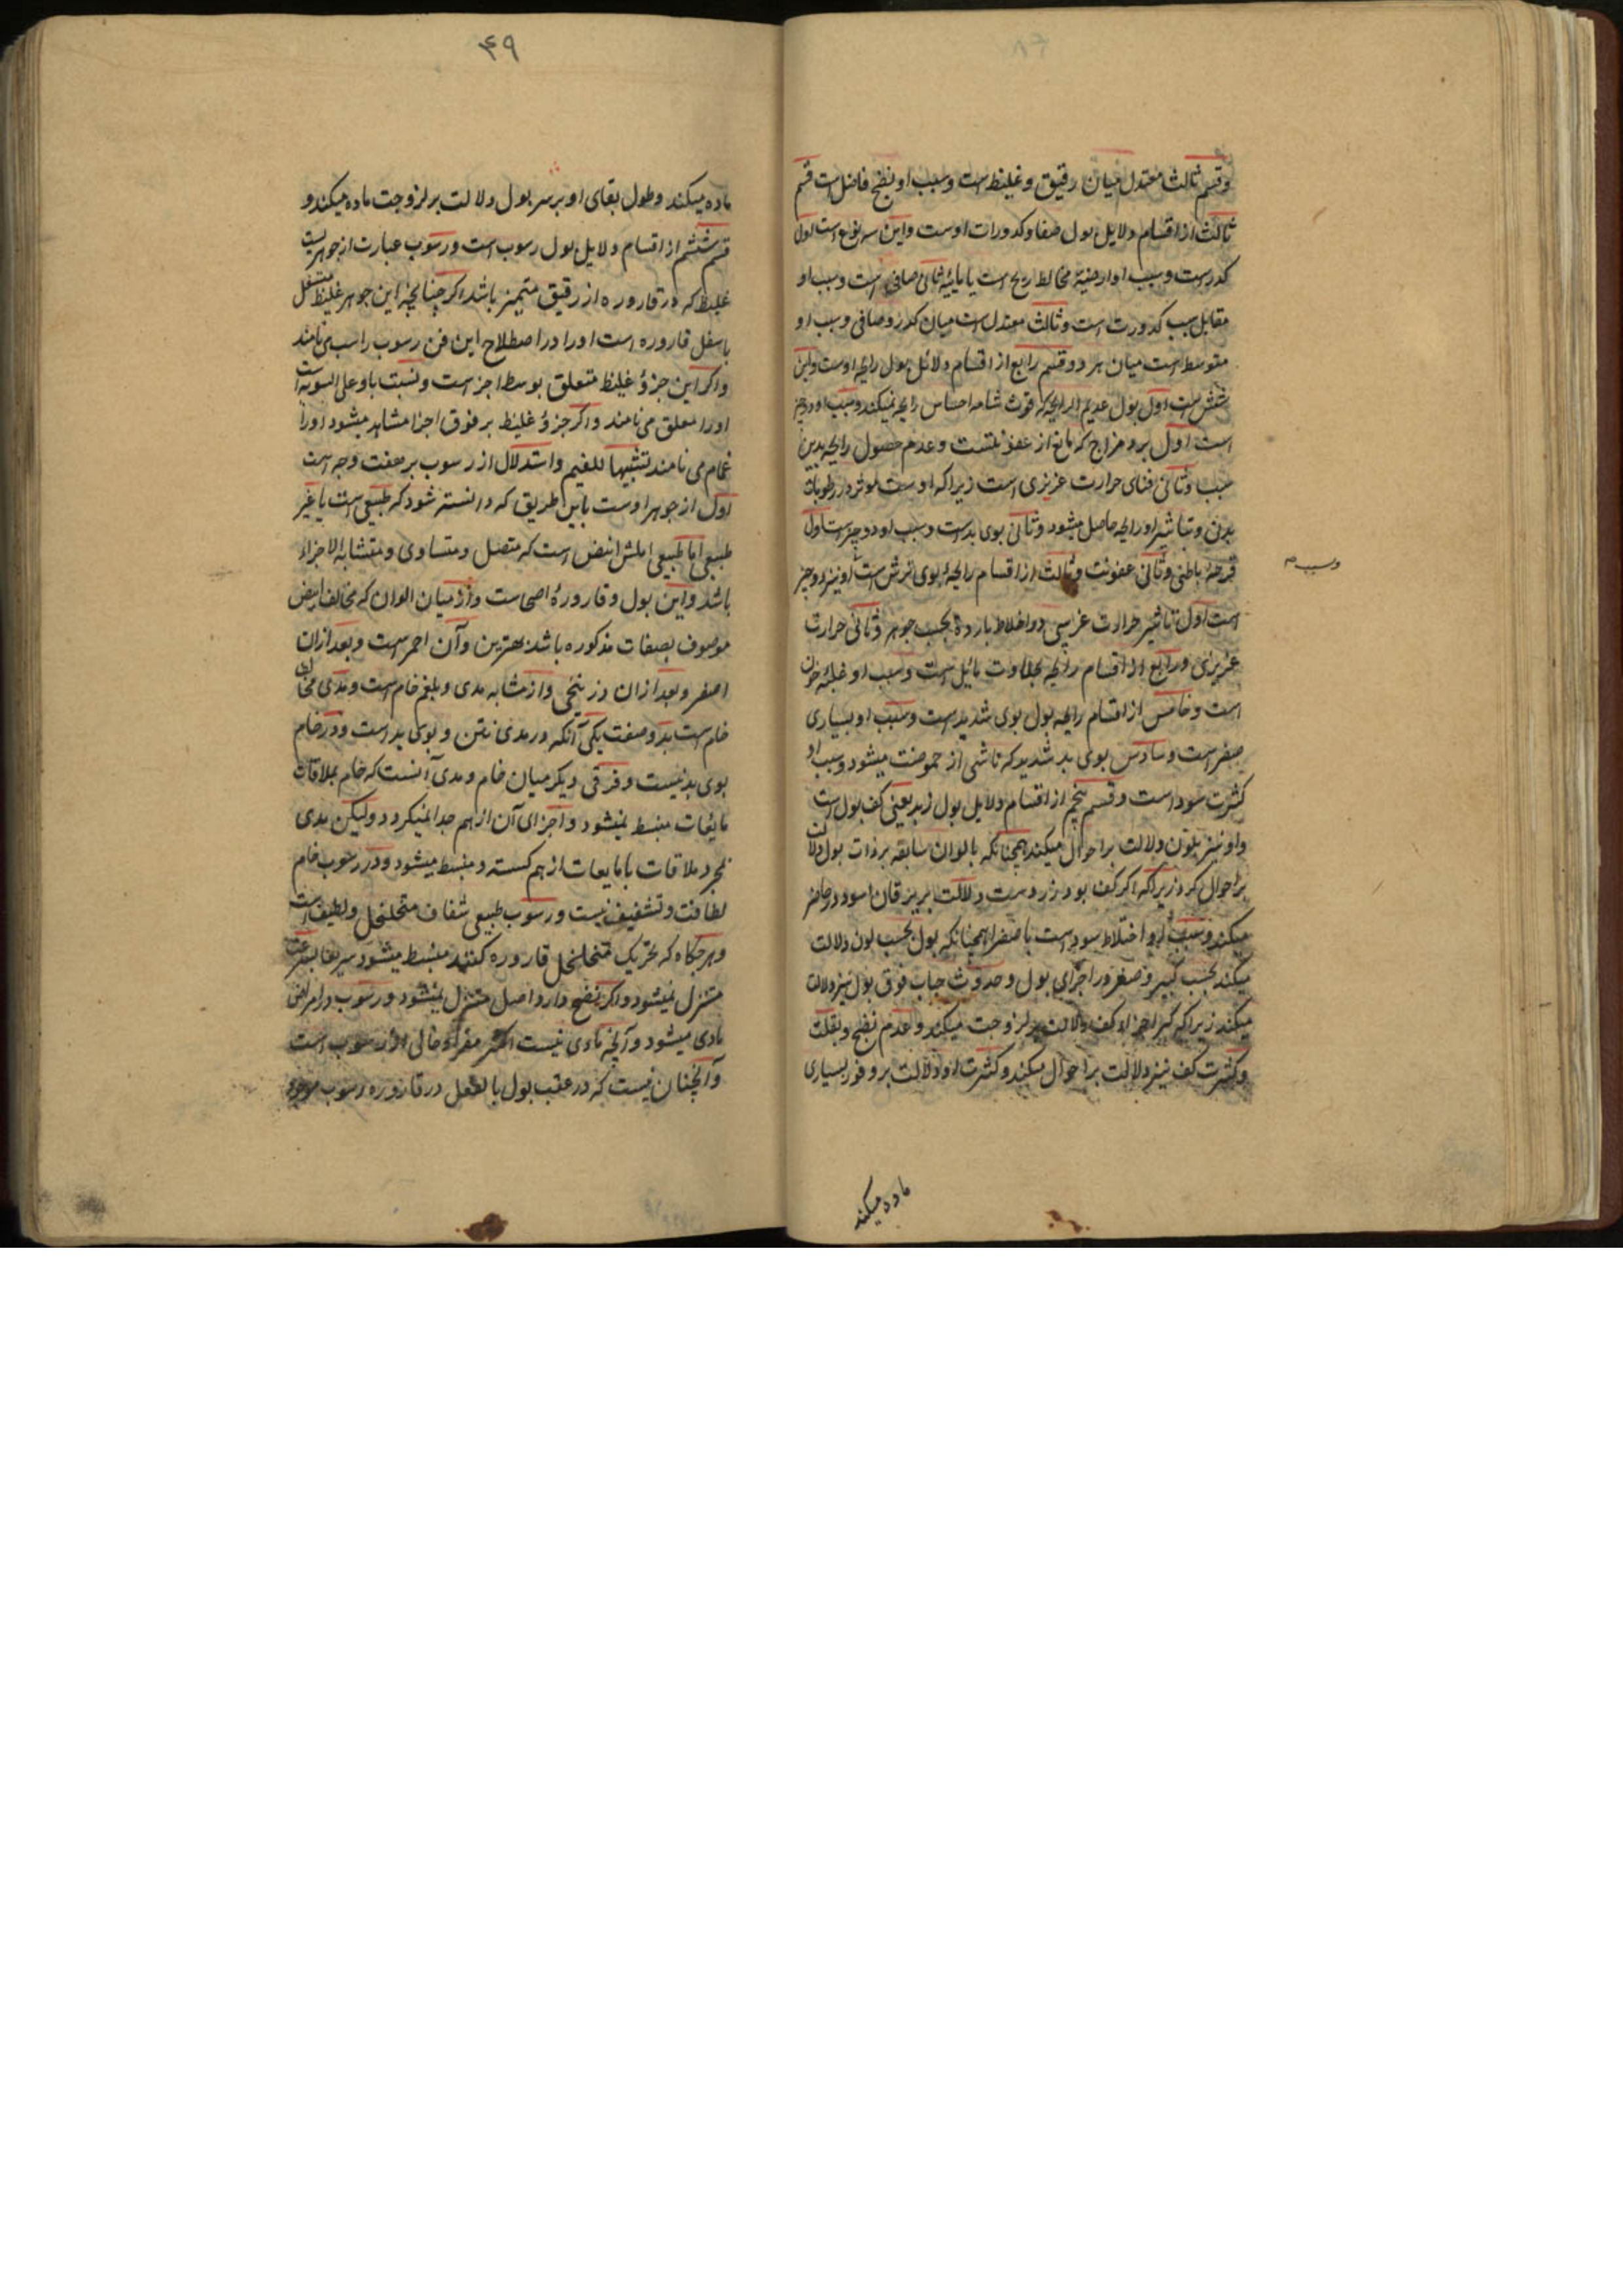 وقسم ثالث معتدل میان رقیق و غلیظ است و سبب او نضج فاضل است قسم
ثالث از اقسام دلایل بول صفا و کدورات اوست و این سه نوع است اول
کدر است و سبب او ارضیة مخالط ریح است یا مائیة ثانی صافی است و سبب او
مقابل سبب کدورت است و ثالث معتدل است میان کدر و صافی و سبب او
متوسط است میان هر دو و قسم رابع از اقسام دلائل بول رایحه اوست و این
شش است اول بول عدیم الرایحه که قوت شامه احساس رایحه نمیکند و سبب او دو چیز
است اول برد مزاج که مانع از عفونتست و عدم حصول رایحه بدین
سبب و ثانی فنای حرارت غریزی است زیرا که اوست موثر در رطوبات
بدن و بتاثیر او رایحه حاصل میشود و ثانی بوی بدست و سبب او دو چیز است اول
قرحهٔ باطنی و ثانی عفونت و ثالث از اقسام رایحهٔ بوی ترش است او نیز دو چیز
وسبب
است اول تاثیر حرارت غریبی در اخلاط بارده بحسب جوهر و ثانی حرارت
غریزی و رابع از اقسام رایحه بحلاوت مایل است و سبب او غلبهٔ خون
است و خامس از اقسام رایحه بول بوی شدید است و سبب او بسیاری
صفراست و سادس بوی بد شدید که ناشی از حموضت میشود و سبب او
کثرت سودا است و قسم پنجم از اقسام دلایل بول زبد یعنی کف بول است
و او نیز بلون دلالت بر احوال میکند همچنانکه بالوان سابقه بر ذات بول دلالت
بر احوال کرد زیرا که اگر کف بود زرد است دلالت بر یرقان اسود در حاضر
میکند و سبب او اختلاط سودا است با صفرا همچنانکه بول بحسب لون دلالت
میکند بحسب کبر و صغر در اجزای بول و حدوث حباب فوق بول نیز دلالت
میکند زیرا که کبر اجزاء کف دلالت بر لزوجت میکند و عدم نضج و بقلت
و کثرت کف نیز دلالت بر احوال میکند و کثرت او دلالت بر وفور بسیاری
ماده میکند
۴۹
ماده میکند و طول بقای او بر سر بول دلالت بر لزوجت ماده میکند و
قسم ششم از اقسام دلایل بول رسوب است و رسوب عبارت از جوهریست
غلیظ که در قاروره از رقیق متمیز باشد اکر چنانچه این جوهر غلیظ متسفل
باسفل قاروره است او را در اصطلاح این فن رسوب راسب می نامند
و اکر این جزؤ غلیظ متعلق بوسط اجزاست و نسبت با و علی السویه است
او را معلق می نامند و اکر جزؤ غلیظ بر فوق اجزا مشاهد میشود او را
غمام می نامند تشبیها للغیم و استدلال از رسوب بر هفت وجه است
اول از جوهر اوست باین طریق که دانسته شود که طبیعی است یا غیر
طبیعی اما طبیعی املش ابیض است که متصل و متساوی و متشابه الاجزاء
باشد و این بول و قارورهٔ اصحاست و از میان الوان که مخالف ابیض
موصوف بصفات مذکوره باشد بهترین و آن احمر است و بعد از ان
اصفر و بعد از ان و زرنیخی و از مشابه مدی و بلغم خام است و مدی مخالط
خام است بدو صفت یکی آنکه در مدی نتن و بوی بد است و در خام
بوی بد نیست و فرقی دیکر میان خام و مدی آنست که خام بملاقات
مایعات منبسط نمیشود و اجزای آن از هم جدا نمیکردد و لیکن مدی
بمجرد ملاقات با مایعات از هم کسسته و منبسط میشود و در رسوب خام
لطافت و تشفیف نیست و رسوب طبیعی شفاف متخلخل و لطیف است
و هر جکاه که بتحریک متخلخل قاروره کنند منبسط میشود سریعا بسرعت
متنزل نمیشود و اکر نضج دارد اصل متنزل نمیشود و رسوب در امراض
مادی میشود و آنچه مادی نیست اکثر مفرا و خالی از رسوب است
و آنچنان نیست که در عقب بول بالفعل در قاروره رسوب موجود